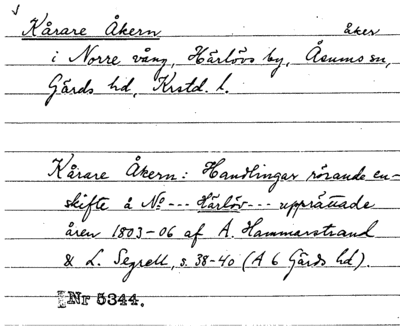 Kårare Åkern åker
i Norre vång, Härlövs by, Åsums sn,
Gärds hd, Krstd. l.
Kårare Åkern: Handlingar rörande en-
skifte å No --- Härlöv --- upprättade
åren 1803-06 af A. Hammarstrand
& L. Segrell, s. 38-40 (A 6 Gärds hd).
Nr 5344.